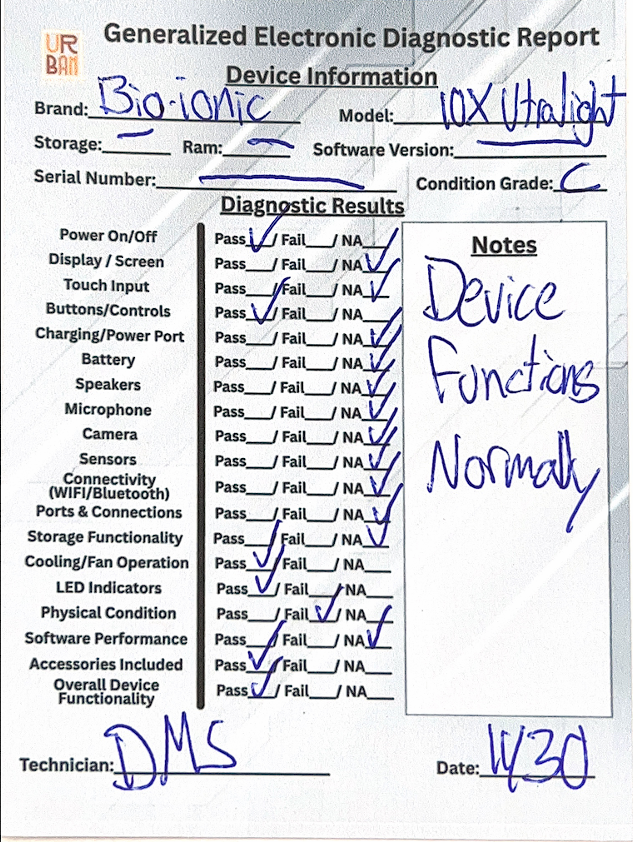 UR
BAN
Generalized Electronic Diagnostic Report
Device Information
Brand: Bio-ionic Model: 10X Utralight
Storage: — Ram: — Software Version: —
Serial Number: — Condition Grade: C
Diagnostic Results
Power On/Off Pass ✓/ Fail__/ NA__
Display / Screen Pass__/ Fail__/ NA ✓
Touch Input Pass__/ Fail__/ NA ✓
Buttons/Controls Pass ✓/ Fail__/ NA__
Charging/Power Port Pass__/ Fail__/ NA ✓
Battery Pass__/ Fail__/ NA ✓
Speakers Pass__/ Fail__/ NA ✓
Microphone Pass__/ Fail__/ NA ✓
Camera Pass__/ Fail__/ NA ✓
Sensors Pass__/ Fail__/ NA ✓
Connectivity
(WIFI/Bluetooth) Pass__/ Fail__/ NA ✓
Ports & Connections Pass__/ Fail__/ NA ✓
Storage Functionality Pass__/ Fail__/ NA ✓
Cooling/Fan Operation Pass ✓/ Fail__/ NA__
LED Indicators Pass ✓/ Fail__/ NA__
Physical Condition Pass__/ Fail ✓/ NA__
Software Performance Pass__/ Fail__/ NA ✓
Accessories Included Pass ✓/ Fail__/ NA__
Overall Device
Functionality Pass ✓/ Fail__/ NA__
Notes
Device
Functions
Normally
Technician: DMS Date: 11/30